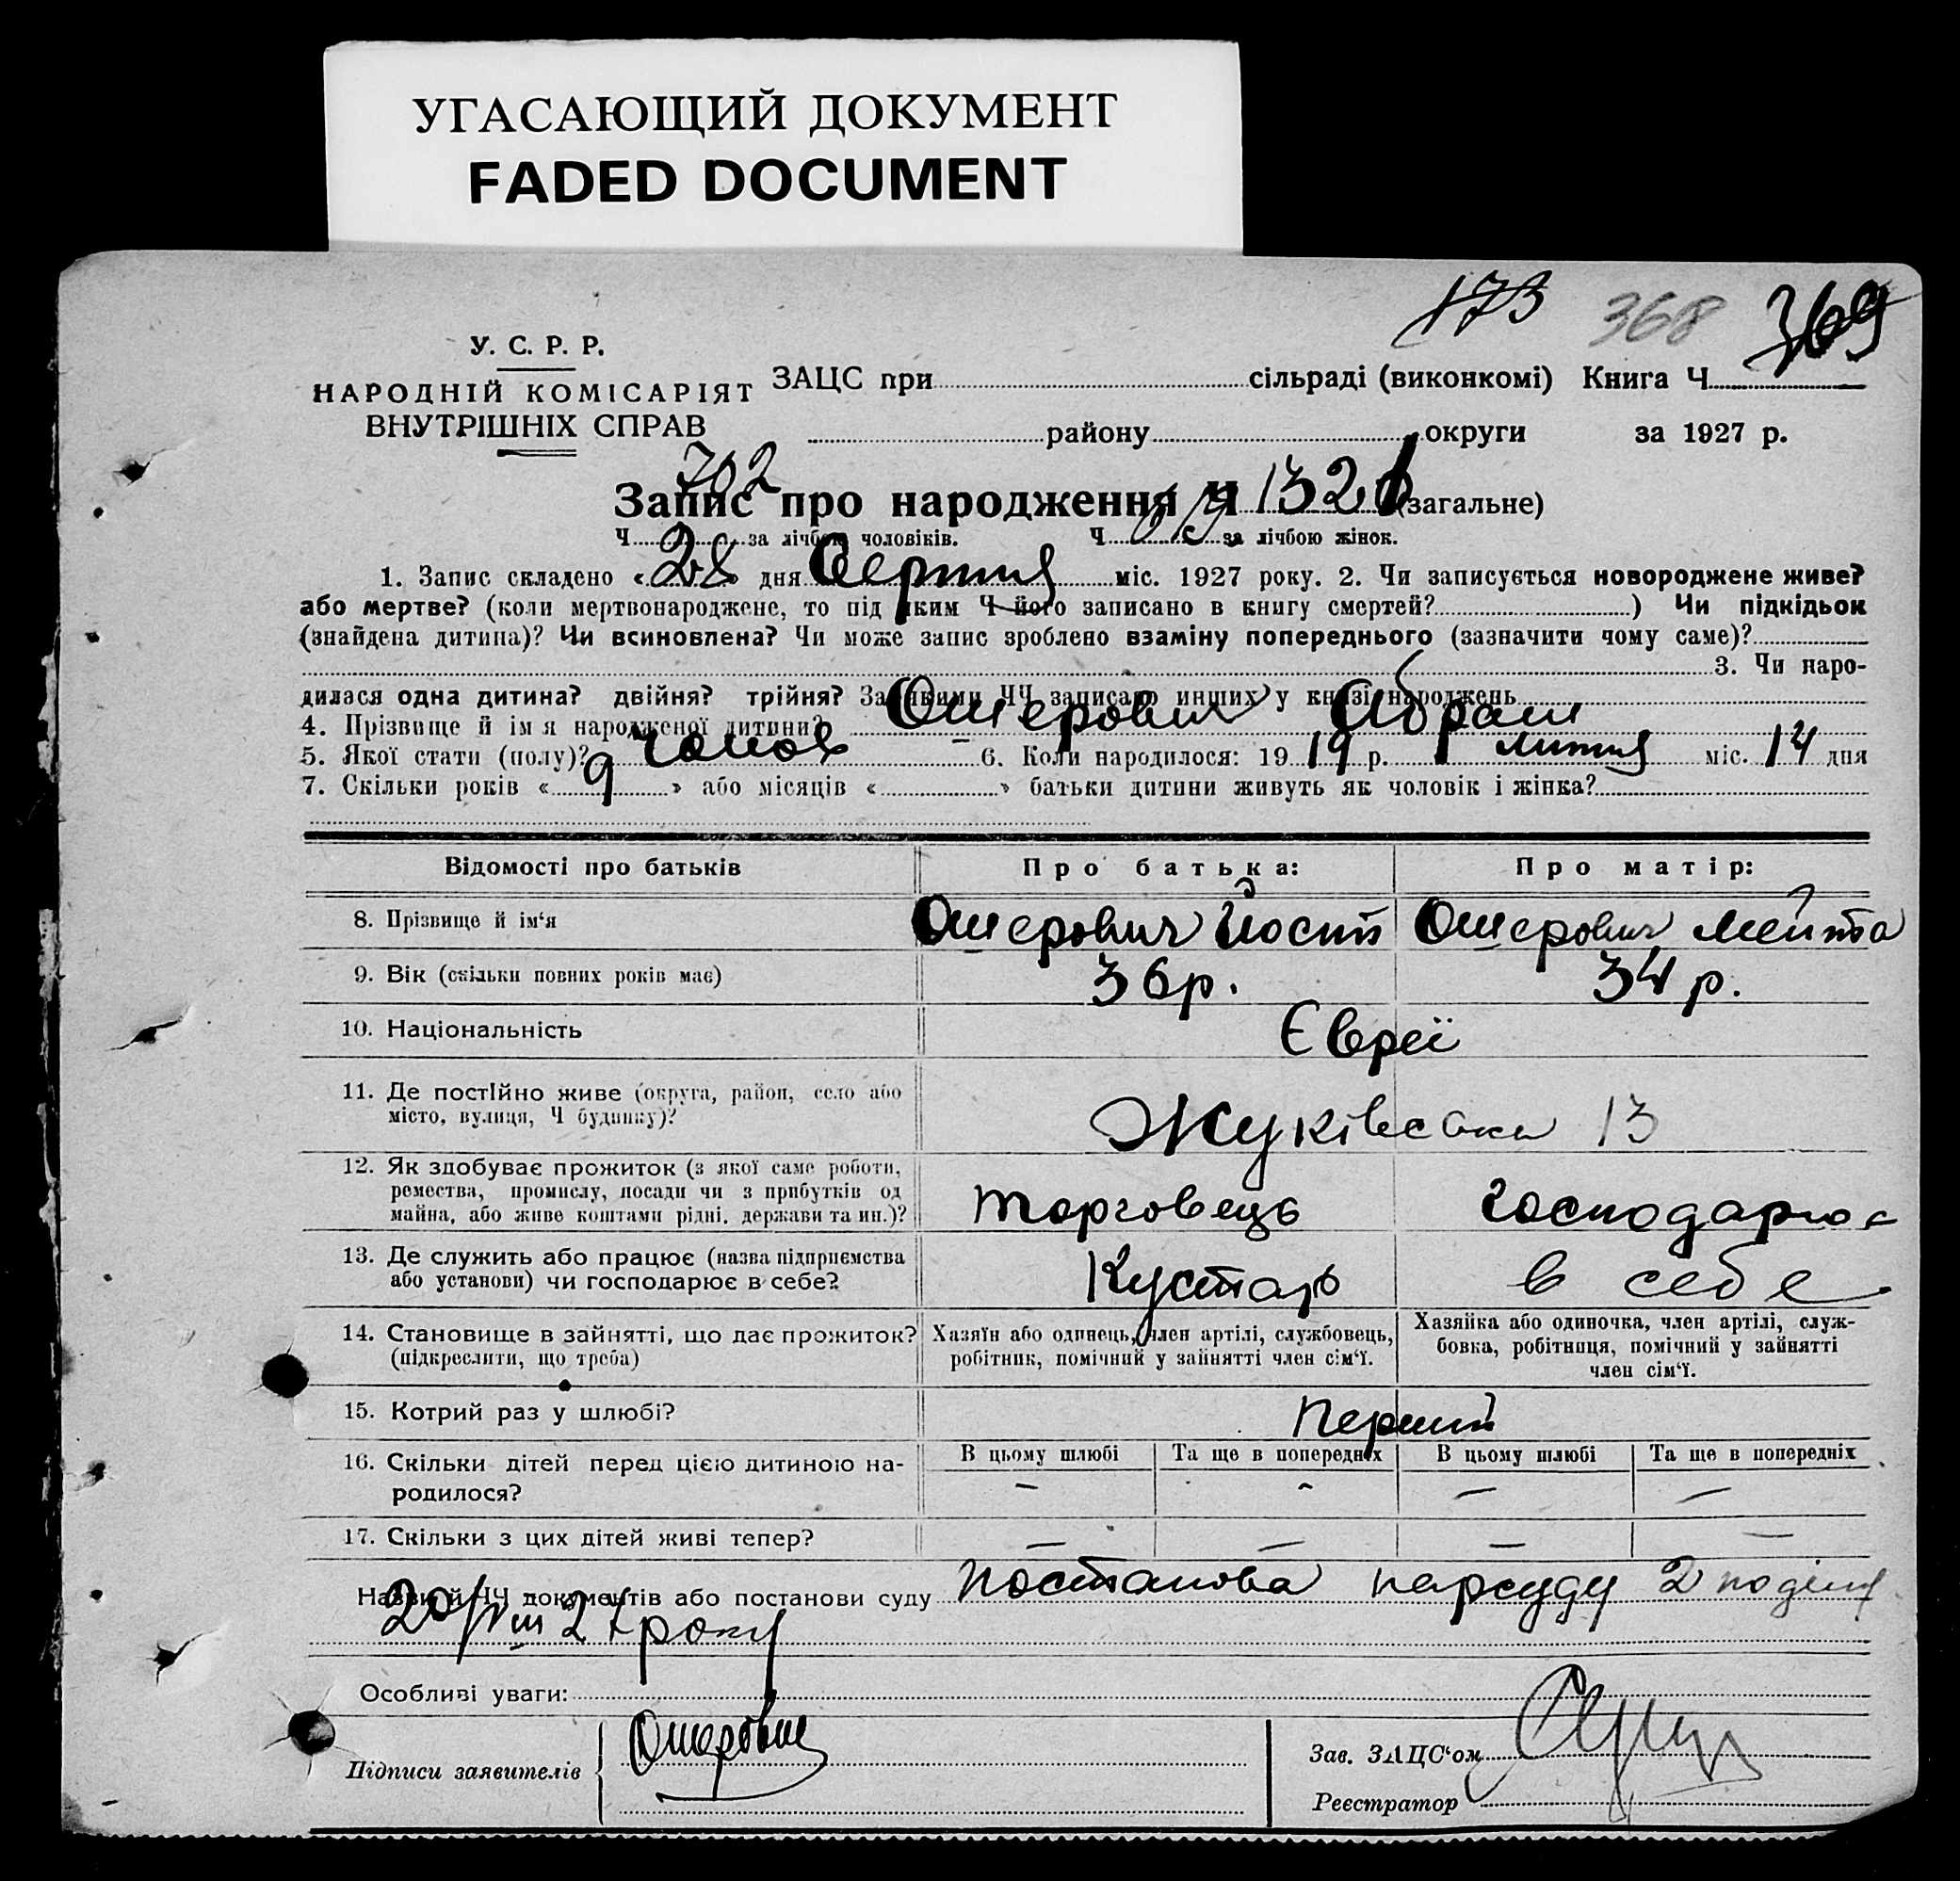 УГАСАЮЩИЙ ДОКУМЕНТ
FADED DOCUMENT
173 368 369
У. С. Р. Р.
НАРОДНІЙ КОМІСАРІЯТ
ВНУТРІШНІХ СПРАВ
ЗАЦС при сільраді (виконкомі) Книга Ч
району округи за 1927 р.
702
Запис про народження Ч 1321 (загальне)
Ч за лічбою чоловіків. Ч за лічбою жінок.
1. Запис складено «28» дня Серпня міс. 1927 року. 2. Чи записується новороджене живе?
або мертве? (коли мертвонароджене, то під яким Ч його записано в книгу смертей? ) Чи підкідьок
(знайдена дитина)? Чи всиновлена? Чи може запис зроблено взаміну попереднього (зазначити чому саме)?
3. Чи наро-
дилася одна дитина? двійня? трійня? За якими ЧЧ записано инших у книзі народжень
4. Прізвище й ім'я народженої дитини? Ошерович Абрам
5. Якої стати (полу)? чолов 6. Коли народилося: 1919 р. лютня міс. 14 дня
7. Скільки років «9» або місяців « » батьки дитини живуть як чоловік і жінка?
Відомості про батьків Про батька: Про матір:
8. Прізвище й ім‘я Ошерович Ошерович Мейта
9. Вік (скільки повних років має) 36 р. 34 р.
10. Національність Євреї
11. Де постійно живе (округа, район, село або
місто, вулиця, Ч будинку)? Жуківська 13
12. Як здобуває прожиток (з якої саме роботи,
ремества, промислу, посади чи з прибутків од
майна, або живе коштами рідні, держави та ин.)? торговець господарює
13. Де служить або працює (назва підприємства
або установи) чи господарює в себе? Кустарь в себе
14. Становище в зайнятті, що дає прожиток?
(підкреслити, що треба)
Хазяїн або одинець, член артілі, службовець,
робітник, помічний у зайнятті член сім‘ї.
Хазяйка або одиночка, член артілі, служ-
бовка, робітниця, помічний у зайнятті
член сім‘ї.
15. Котрий раз у шлюбі? Перший
16. Скільки дітей перед цією дитиною на-
родилося?
В цьому шлюбі Та ще в попередніх В цьому шлюбі Та ще в попередніх
– – – –
17. Скільки з цих дітей живі тепер? – – – –
Назви й ЧЧ документів або постанови суду постанова нарсуду 2 поділу
20/VIII 27 року
Особливі уваги:
Підписи заявителів Ошерович
Зав. ЗАЦС‘ом
Реєстратор